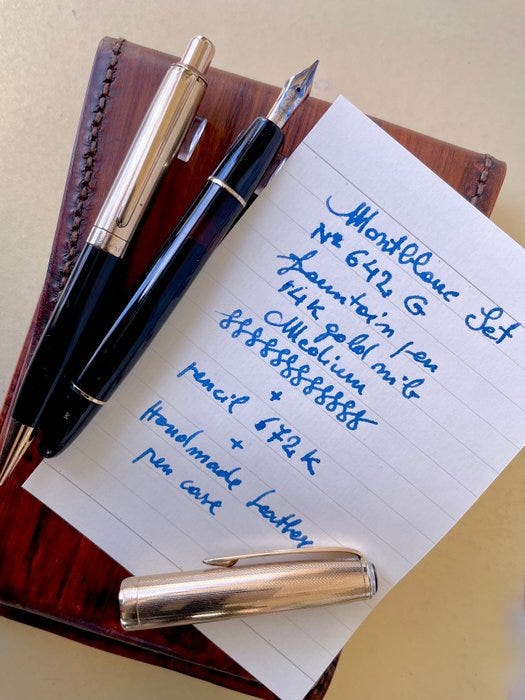 Montblanc Set
Nº 642 G
fountain pen
14K gold nib
Medium
+
pencil 672 K
+
Handmade leather
pen case
M